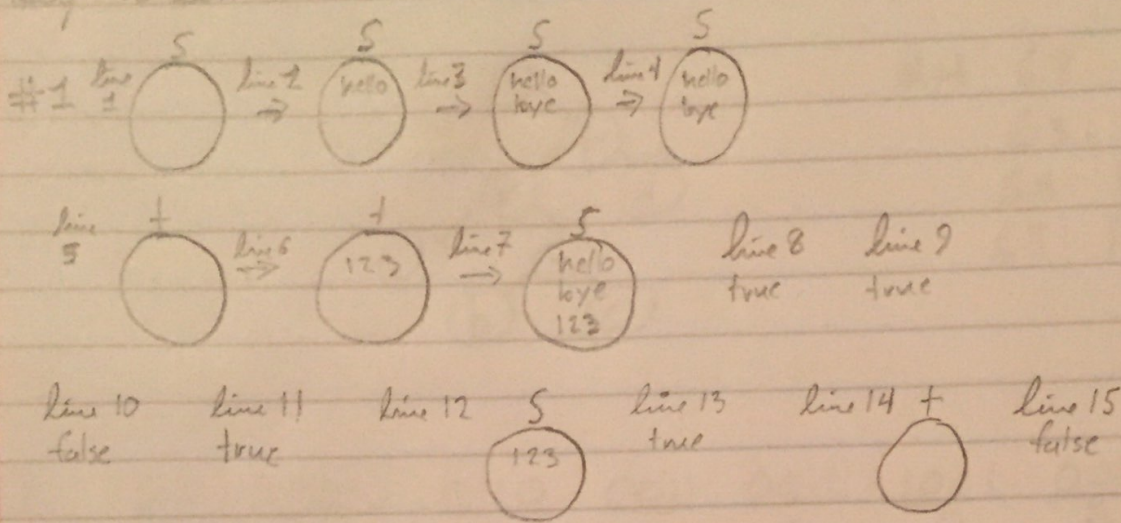 S S S S
#1 line 1 line 2 → hello line 3 → hello bye line 4 → hello bye
line 5 t line 6 → t 123 line 7 → S hello bye 123 line 8 true line 9 true
line 10 false line 11 true line 12 S 123 line 13 true line 14 t line 15 false